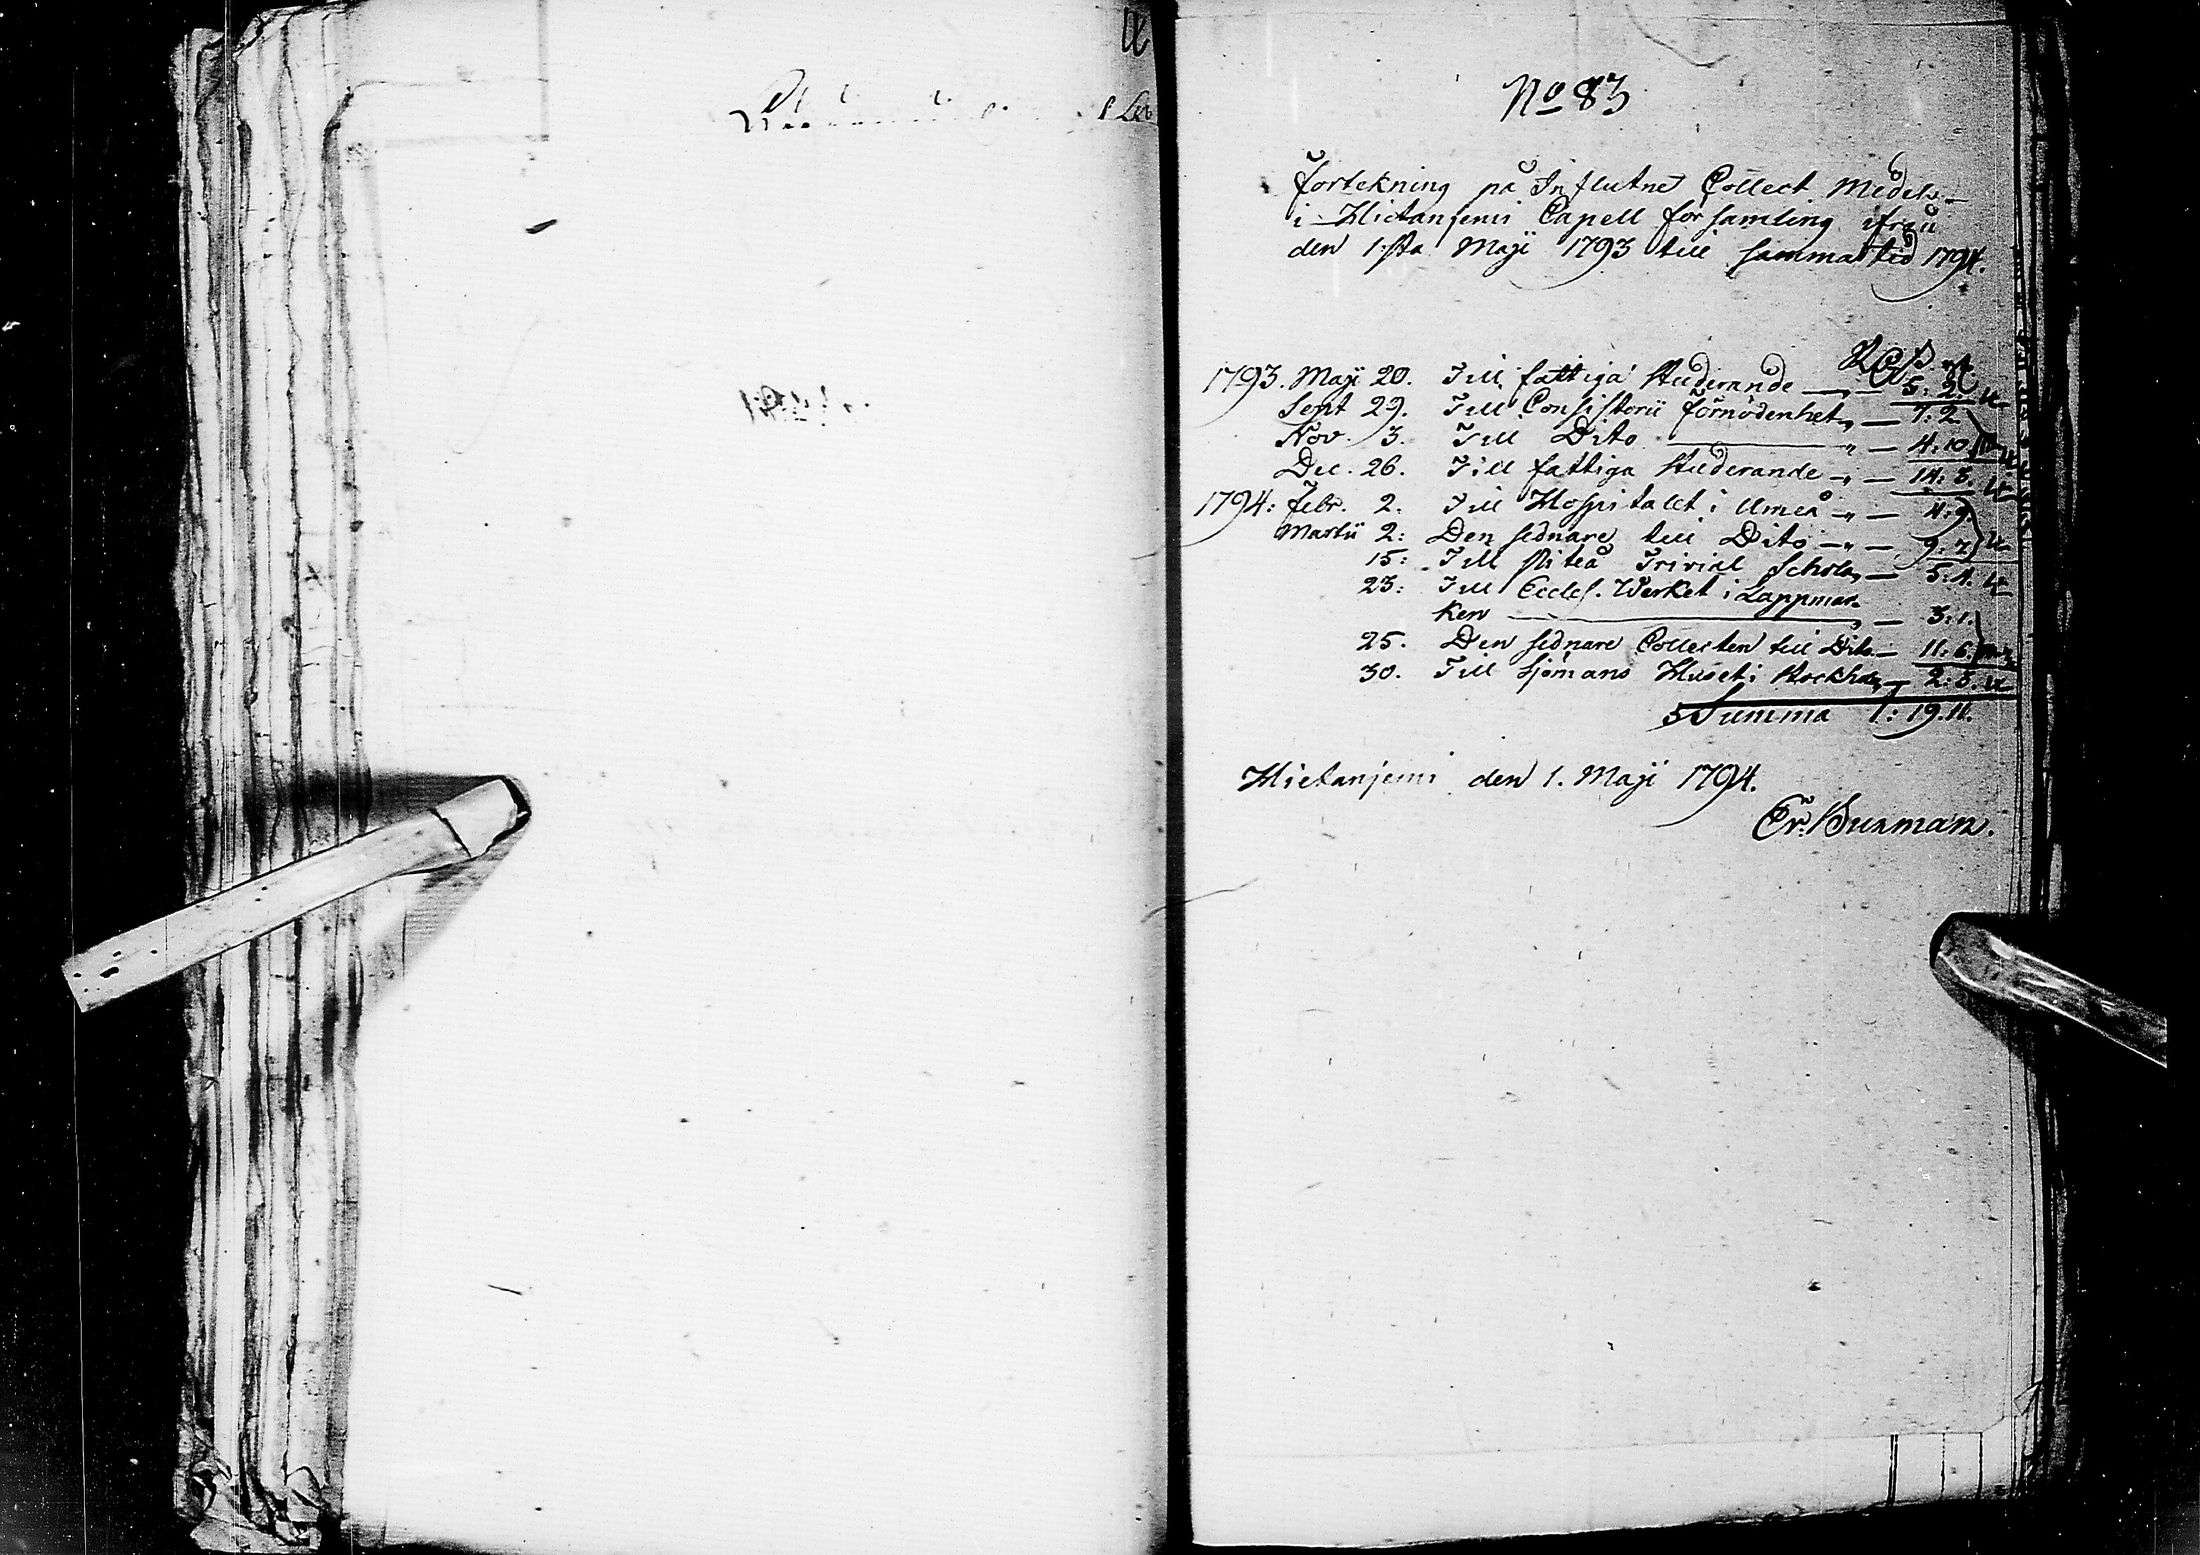 No 83
Förtekning på Influtne Collect Medel
i Hietanjemi Capell församling ifrån
den 1:sta Maji 1793 till samma tid 1794.
1793. Maji 20. Till fattiga Studerande — „ — 5: 2.
Sept 29. Till Consistorii förnödenhet „ — 7: 2
Nov. 3. Till Dito — „ — 4: 10
Dec. 26. Till fattiga Studerande „ — 14: 8.
1794: Febr. 2. Till Hospitalet i Umeå „ — 4: 9.
Martii 2: Den sednare till Dito — „ — 9: 7
15: Till Piteå Trivial Schola „ — 5: 4.
23: Till Eccles. Werket i Lappmar-
ken — „ — 3: 1.
25. Den sednare Collecten till Dito — 11: 6.
30. Till Sjömans Huset i Stockh. „ — 2: 8.
Summa 1: 19. 11.
Hietanjemi den 1. Maji 1794.
Er. Burman.